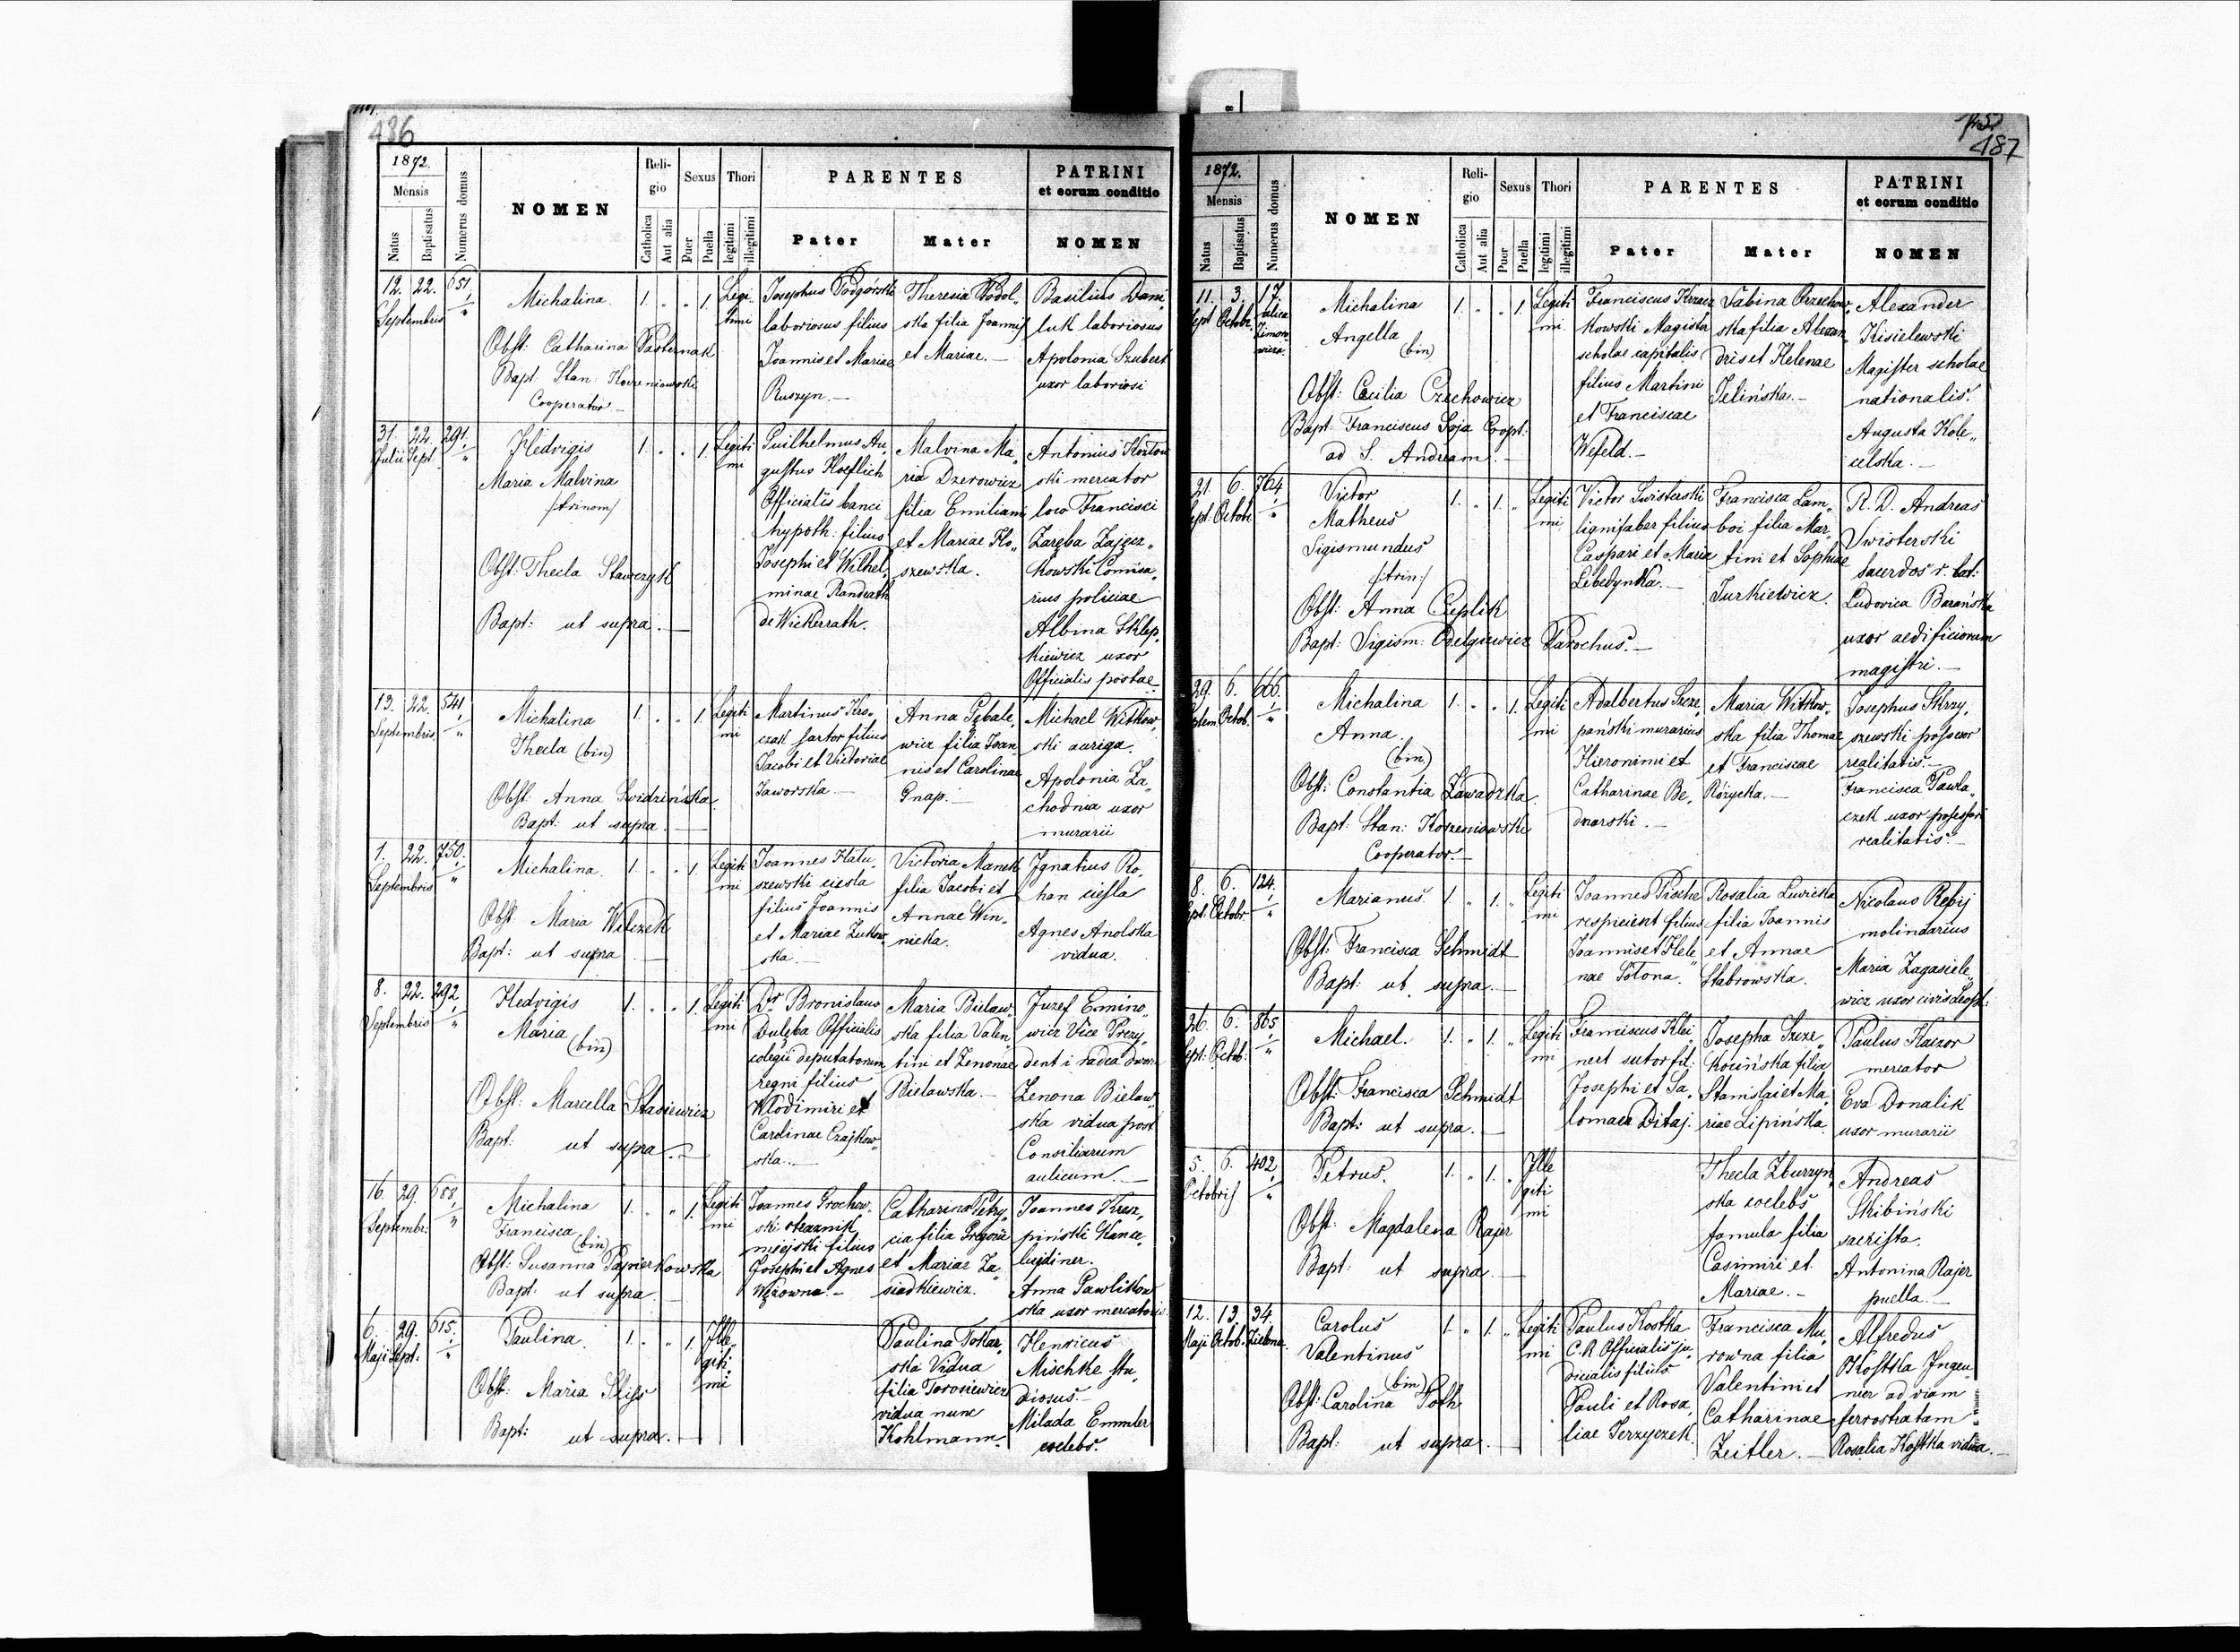 486
1872.
Mensis
Natus
Baptisatus
Numerus domus
NOMEN
Religio
Catholica
Aut alia
Sexus
Puer
Puella
Thori
legitimi
illegitimi
PARENTES
Pater
Mater
PATRINI
et eorum conditio
NOMEN
12. 22. 651.
Septembris
Michalina
1. " " 1.
Legi-
timi
Obst: Catharina Pasternak
Bapt: Stan: Korzeniowski
Cooperator.—
Josephus Podgórski
laboriosus filius
Joannis et Mariae
Ruszyn.—
Theresia Podol-
ska filia Joannis
et Mariae.—
Basilius Dani-
luk laboriosus
Apolonia Szubert
uxor laboriosi
31. 22. 291.
Julii Sept.
Hedvigis
Maria Malvina
/trinom/
1. " " 1.
Legiti
mi
Obst: Thecla Stawczyk
Bapt: ut supra.—
Guilhelmus Au-
gustus Hoeflich
Officialis banci
hypoth. filius
Josephi et Wilhel-
minae Randerath
de Wickerrath.
Malvina Ma-
ria Dzerowicz
filia Emiliani
et Mariae Ho-
szewska.
Antonius Kozłow
ski mercator
loco Francisci
Zaręba Zajęcz-
kowski Comisa-
rius policiae
Albina Sklep-
kiewicz uxor
Officialis postae.
13. 22. 541.
Septembris
Michalina
Thecla (bin)
1. " " 1.
Legiti
mi
Obst: Anna Swidzińska
Bapt: ut supra.—
Martinus Kro-
czak sartor filius
Jacobi et Victoriae
Jaworska.—
Anna Gębale-
wicz filia Joan-
nis et Carolinae
Gnap.—
Michael Witkow-
ski auriga.
Apolonia Za-
chodnia uxor
murarii
1. 22. 750.
Septembris
Michalina.
1. " " 1.
Legiti
mi
Obst: Maria Wilczek
Bapt: ut supra
Joannes Hału-
szewski ciesla
filius Joannis
et Mariae Żukow-
ska.—
Victoria Manek
filia Jacobi et
Annae Win-
nicka.
Ignatius Ro-
han ciesla
Agnes Anolska
vidua.
8. 22. 292.
Septembris
Hedvigis
Maria
(bin)
1. " " 1.
Legiti
mi
Obst: Marcella Stasiewicz
Bapt: ut supra.—
Dr Bronislaus
Dulęba Officialis
colegii deputatorum
regni filius
Włodimiri et
Carolinae Czajkow-
ska.—
Maria Bielaw-
ska filia Valen-
tini et Zenonae
Bielawska.—
Juzef Eminо-
wicz Vice Prezy-
dent i radca dworu
Zenona Bielaw-
ska vidua post
Consiliarum
aulicum.—
16. 29. 688.
Septembr:
Michalina
Francisca
(bin)
1. " " 1.
Legiti
mi
Obst: Susanna Papierkowska
Bapt: ut supra.
Joannes Grochow-
ski strażnik
miejski filius
Josephi et Agnes
Wężowna.—
Catharina Petry-
cia filia Gregorii
et Mariae Za-
siadkiewicz.
Joannes Krez-
piński Kance-
lujdiner.
Anna Pawlikow
ska uxor mercatoris
6. 29. 615.
Maji Sept:
Paulina.
1. " " 1.
Ille-
giti-
mi
Obst: Maria Sliss
Bapt: ut supra.—
Paulina Tokar-
ska Vidua
filia Torosiewicz
vidua nunc
Kohlmann.
Henricus
Mischke stu-
diosus.—
Milada Emmler
coelebs.
487
1872.
Mensis
Natus
Baptisatus
Numerus domus
NOMEN
Religio
Catholica
Aut alia
Sexus
Puer
Puella
Thori
legitimi
illegitimi
PARENTES
Pater
Mater
PATRINI
et eorum conditio
NOMEN
11. 3. 17.
Sept Octobr.
Michalina
Angella
(bin)
1. " " 1.
Legiti
mi
Obst: Cecilia Czechowicz
Bapt: Franciscus Soja Coopt:
ad S. Andream.—
Franciscus Kracz
kowski Magister
scholae capitalis
filius Martini
et Franciscae
Wefeld.—
Sabina Orzechow-
ska filia Alexan-
dri et Helenae
Jelińska.—
Alexander
Kisielewski
Magister scholae
nationalis.
Augusta Kole-
celska.—
21. 6. 764.
Sept. Octobr
Victor
Matheus
Sigismundus
/trin:/
1. " 1. "
Legiti
mi
Obst: Anna Czeplik
Bapt: Sigism: Odelgiewicz Parochus.—
Victor Swisterski
lignifaber filius
Caspari et Maria
Lebedynka.—
Francisca Lam-
boi filia Mar-
tini et Sophiae
Jurkiewicz.
R. D. Andreas
Swisterski
Sacerdos r. lat:
Ludovica Barańska
uxor aedificiorum
magistri.—
29. 6. 666.
Septem. Octob.
Michalina
Anna.
(bin)
1. " " 1.
Legiti
mi
Obst: Constantia Zawadzka
Bapt: Stan: Korzeniowski
Cooperator.—
Adalbertus Szcze-
pański murarius
Hieronimi et
Catharinae Be-
dnarski.—
Maria Witkow-
ska filia Thomae
et Franciscae
Różycka.—
Josephus Skrzy-
szewski possessor
realitatis.—
Francisca Pawla-
czek uxor possessori
realitatis.—
8. 6. 124.
Sept: Octobr
Marianus.
1. " 1. "
Legiti
mi
Obst: Francisca Schmidt
Bapt: ut supra.—
Joannes Pische
respicient filius
Joannis et Hele-
nae Sotona.
Rosalia Lwicka
filia Joannis
et Annae
Stabrowska.
Nicolaus Repij
molindarius
Maria Zagasiele-
wicz uxor civis Leopl:
26. 6. 865.
Sept: Octob:
Michael.
1. " 1. "
Legiti
mi
Obst: Francisca Schmidt
Bapt: ut supra.—
Franciscus Klei-
nert sutor fil:
Josephi et Sa-
lomaea Ditaj.
Josepha Szcze-
kocińska filia
Stanislai et Ma-
riae Lipińska.
Paulus Kaczor
mercator
Eva Donalik
uxor murarii
5. 6. 402.
Octobris
Petrus.
1. " 1. "
Ille
giti
mi
Obst: Magdalena Rajer
Bapt: ut supra.—
Thecla Zburzyń-
ska coelebs
famula filia
Casimiri et
Mariae.—
Andreas
Skibiński
sacrista.
Antonina Rajer
puella.—
12. 13. 34.
Maji Octob. Zielona
Carolus
Valentinus
(bin)
1. " 1. "
Legiti
mi
Obst: Carolina Toth
Bapt: ut supra.—
Paulus Kostka
C. R. Officialis ju-
dicialis filius
Pauli et Rosa-
liae Jerzyczek.
Francisca Mu-
rowna filia
Valentini et
Catharinae
Zeitler.—
Alfredus
Kostka Ingeu-
nier ad viam
ferrostratam
Rosalia Kostka vidua.—